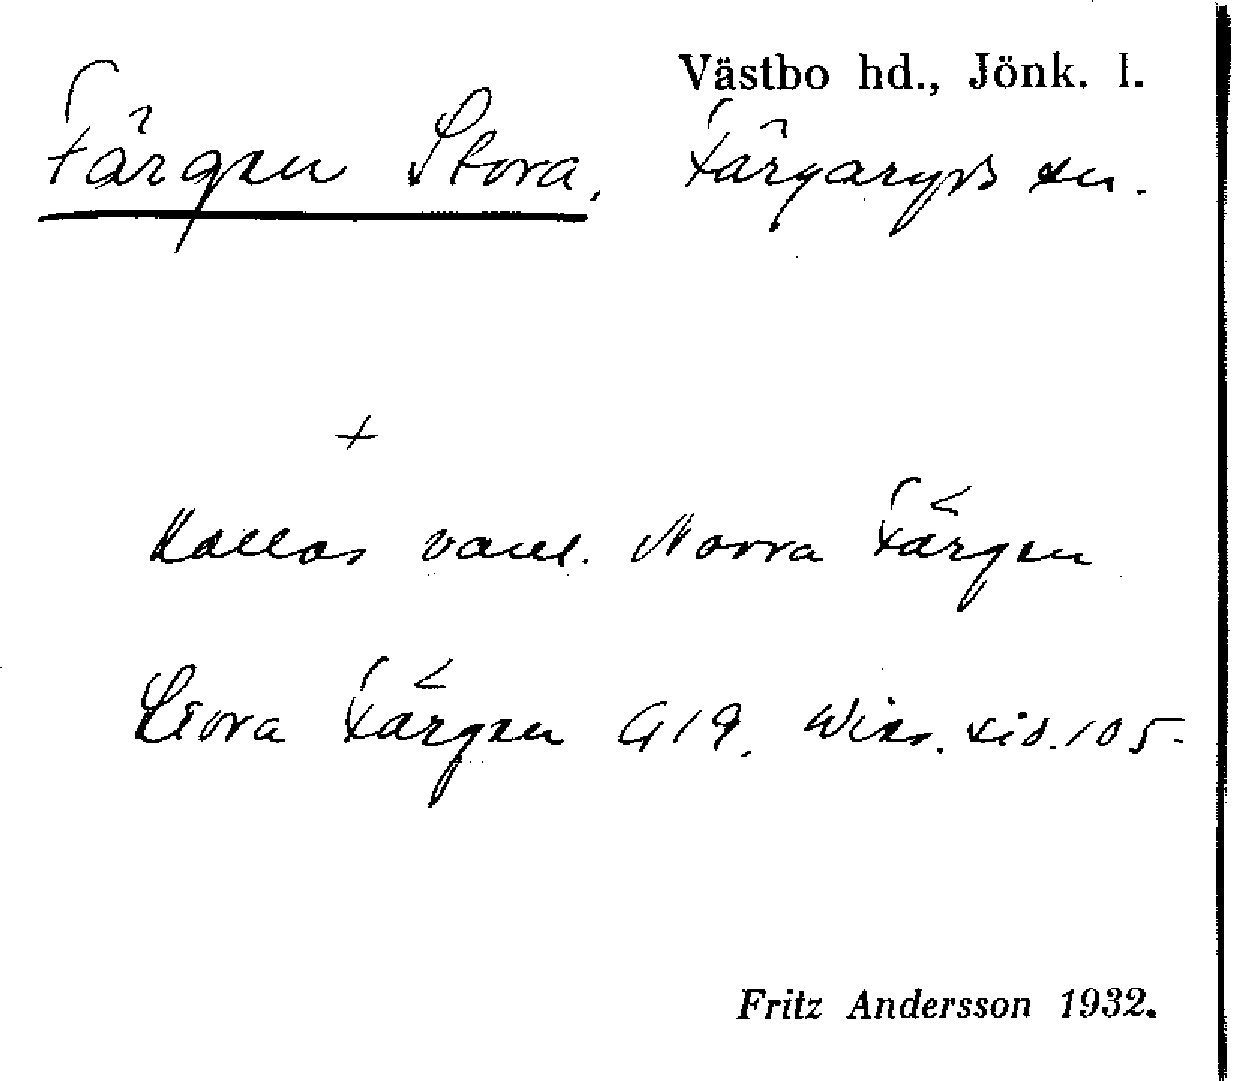 Västbo hd., Jönk. l.
Färgen Stora. Färgaryds sn.
+
Kallas vanl. Norra Färgen
Stora Färgen G19. Wies. sid. 105-
Fritz Andersson 1932.